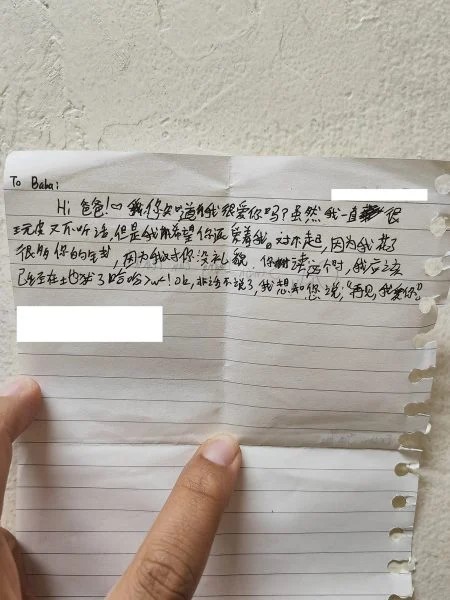 To Baba:
Hi, 爸爸!♡ 你知道我很爱你吗?虽然我一直很
顽皮又不听话,但是我希望你还爱着我。对不起,因为我花了
很多你的,因为我对你没礼貌。你读这个时,我应该
已经在了哈哈>w<!Ok,非话不说了,我想和您说,“再见,我爱你。”